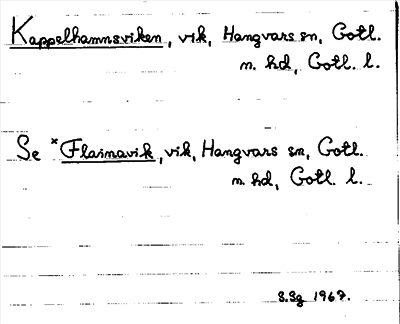 Kappelhamnsviken, vik, Hangvars sn, Gotl.
n. hd, Gotl. l.
Se *Flainavik, vik, Hangvars sn, Gotl.
n. hd, Gotl. l.
S.Sg 1967.